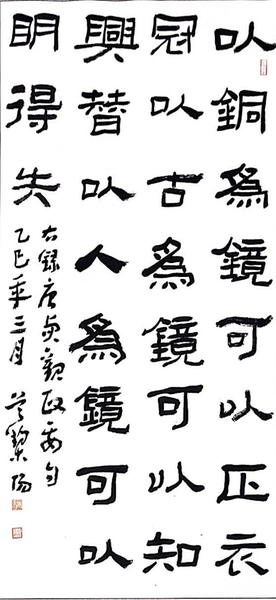 以銅為鏡可以正衣
冠以古為鏡可以知
興替以人為鏡可以
明得失
右錄唐貞觀政要句
乙巳年三月